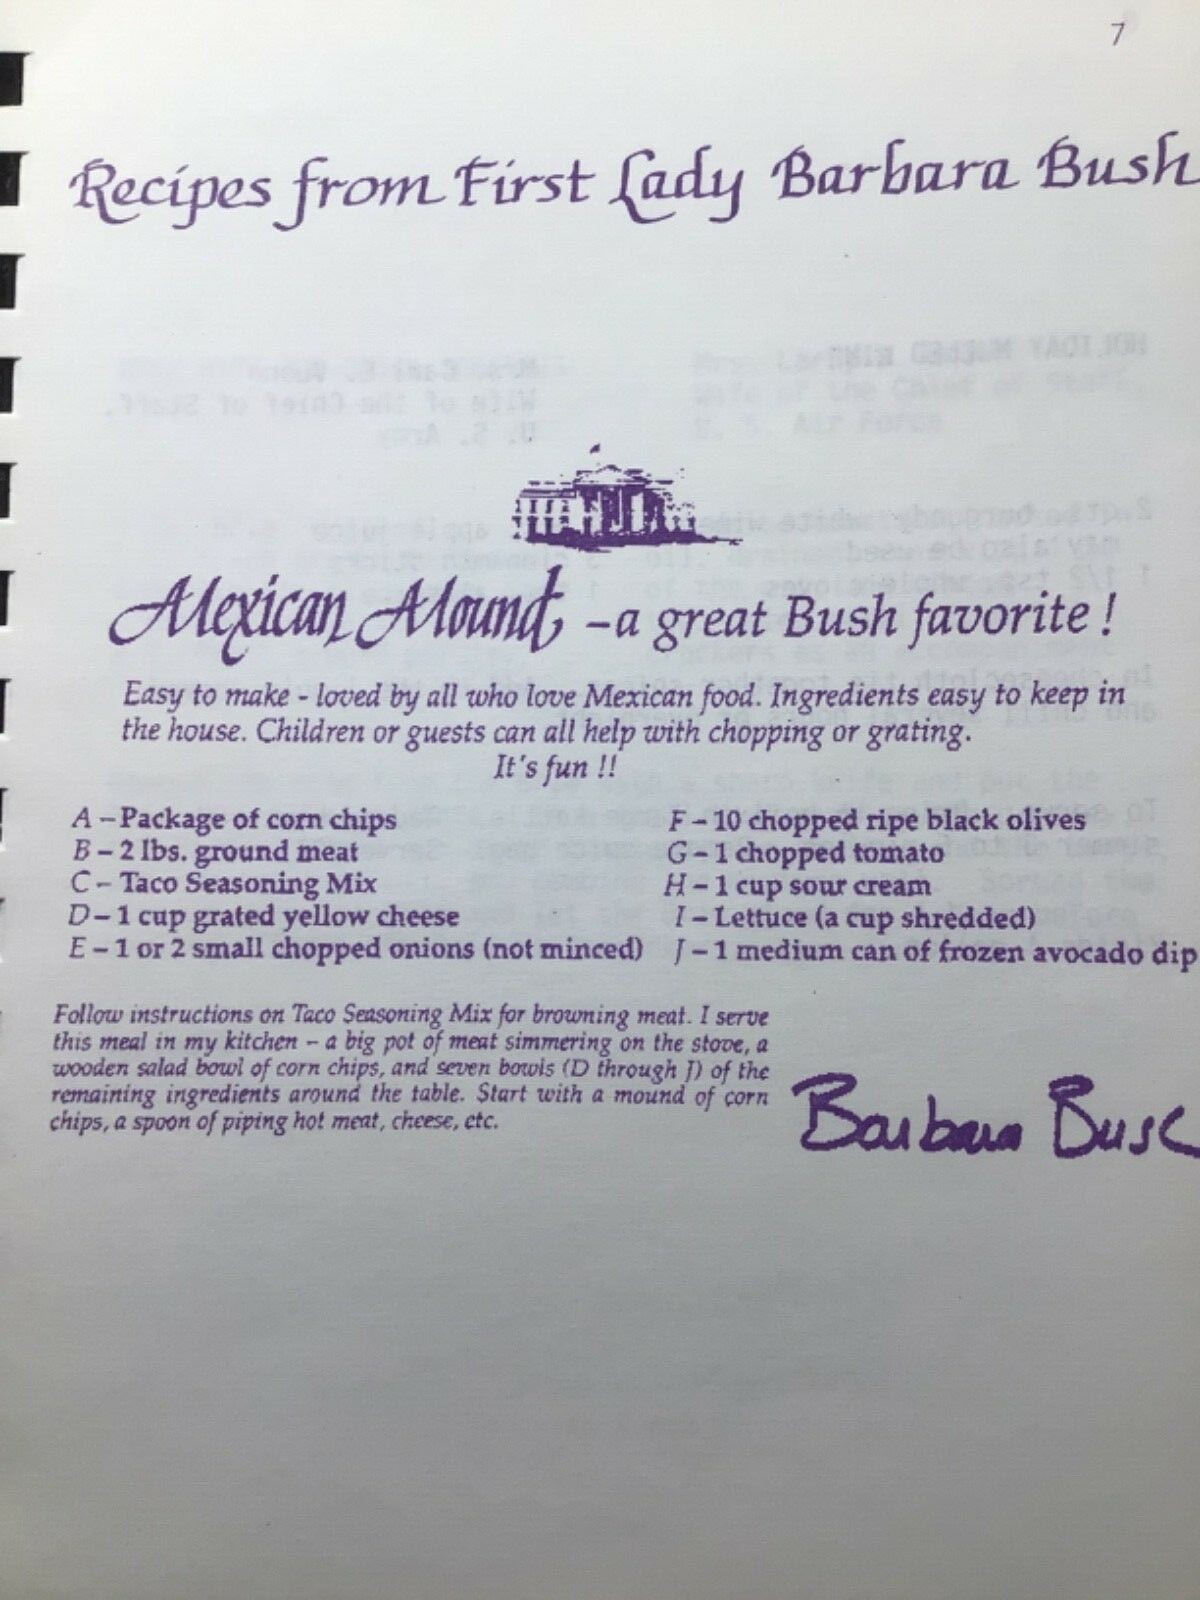 7
Recipes from First Lady Barbara Bush
Mexican Mound – a great Bush favorite !
Easy to make - loved by all who love Mexican food. Ingredients easy to keep in
the house. Children or guests can all help with chopping or grating.
It's fun !!
A – Package of corn chips
B – 2 lbs. ground meat
C – Taco Seasoning Mix
D – 1 cup grated yellow cheese
E – 1 or 2 small chopped onions (not minced)
F – 10 chopped ripe black olives
G – 1 chopped tomato
H – 1 cup sour cream
I – Lettuce (a cup shredded)
J – 1 medium can of frozen avocado dip
Follow instructions on Taco Seasoning Mix for browning meat. I serve
this meal in my kitchen – a big pot of meat simmering on the stove, a
wooden salad bowl of corn chips, and seven bowls (D through J) of the
remaining ingredients around the table. Start with a mound of corn
chips, a spoon of piping hot meat, cheese, etc.
Barbara Bus